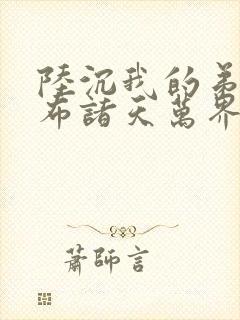 陸沉我的弟
布諸天萬界
蕭師言